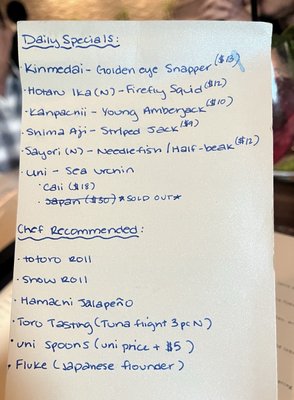 Daily Specials:
· Kinmedai - Golden eye Snapper ($13)
· Hotaru Ika (N) - Firefly Squid ($12)
· Kanpachi - Young Amberjack ($10)
· Shima Aji - Striped Jack ($9)
· Sayori (N) - Needlefish / Half-beak ($12)
· Uni - Sea urchin
· Cali ($18)
· Japan ($30) *SOLD OUT*
Chef Recommended:
· Totoro Roll
· Snow Roll
· Hamachi Jalapeño
· Toro Tasting (Tuna flight 3pc N)
· Uni Spoons (uni price + $5)
· Fluke (Japanese flounder)